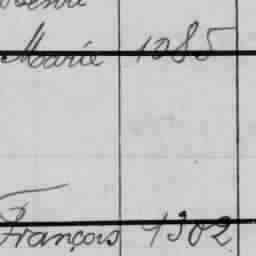 Marie 1085
François 1302